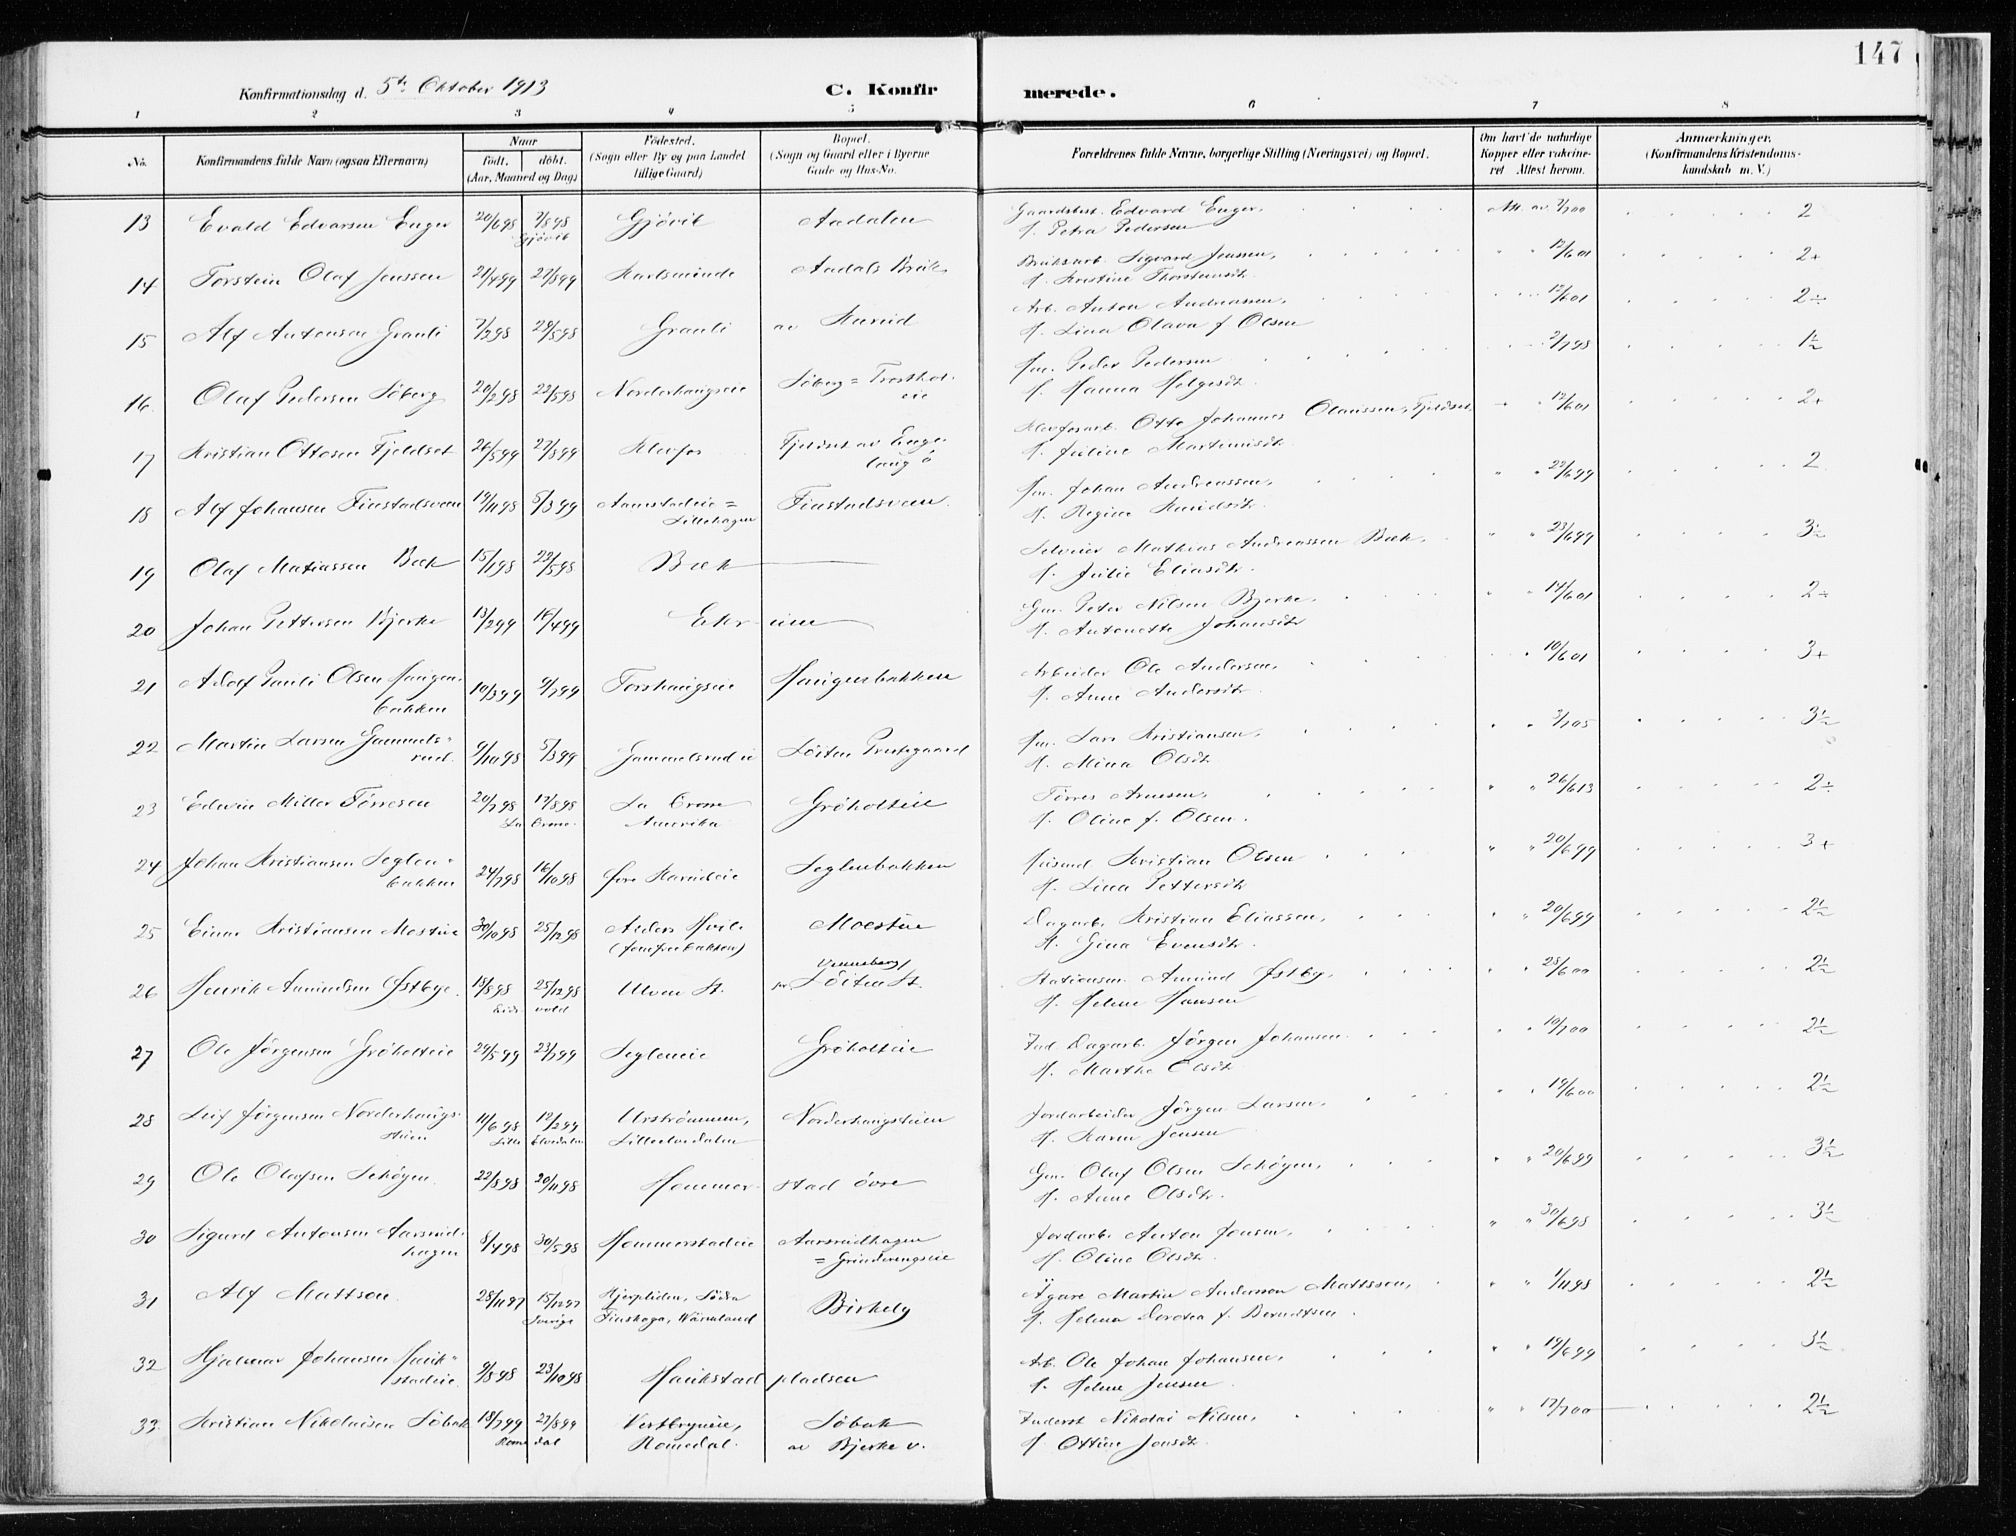 147
Konfirmationsdag d. 5te Oktober 1913 C. Konfirmerede.
1 2 3 4 5 6 7 8
No. Konfirmandens fulde Navn (ogsaa Efternavn) Naar født, døbt. (Aar, Maaned og Dag) Fødested. (Sogn eller By og paa Landet tillige Gaard) Bopæl. (Sogn og Gaard eller i Byerne Gade og Hus-No. Forældrenes fulde Navne, borgerlige Stilling (Næringsvei) og Bopæl. Om havt de naturlige Kopper eller vakcineret Attest herom. Anmærkninger, (Konfirmandens Kristendomskundskab m. V.)
13 Evald Edvarsen Enger 20/6 98 7/8 98 Gjøvik Gjøvik Aadalen Gaardsbest. Edvard Enger, Att. av 2
H. Petra Pedersen
14 Torstein Olaf Jenssen 21/4 99 27/8 99 Aadals Bruk Bruksarb. Sigvard Jensen, " " 12/6 01 2+
H. Kristine Thorstensdtr
15 Alf Antonsen Granli 7/2 98 29/5 98 Granli av Kurud Arb. Anton Andreassen, " " 12/6 01 2÷
H. Lina Olava f. Olsen
16 Olaf Pedersen Søberg 20/2 98 22/5 98 Norderhaugseie Søberg = eie Peder Pedersen 2/7 98 1½
H. Hanna Helgesdtr
17 Kristian Ottosen Fjeldset 26/5 99 27/8 99 Klevfos Fjeldset av Enge- laug ø Klevfosarb. Otto Johannes Olaussen, Fjeldset, " " 12/6 01 2+
H. Juline Martinusdtr
18 Alf Johansen Finstadsveen 19/11 98 5/3 99 Aamstadeie = Lillehagen Finstadsveen Johan Andreassen, " " 22/6 99 2
H. Regine Knudsdtr
19 Olaf Matiassen Bæk 15/1 98 22/5 98 Bæk Selveier Mathias Andreassen Bæk, " " 23/6 99 3½
H. Julie Eliasdtr.
20 Johan Pettersen Bjerke 13/2 99 16/4 99 Ekrumen Gm. Peter Nilsen Bjerke, " " 14/6 01 2÷
H. Antonette Johansdtr
21 Adolf Pauli Olsen Haugen- bakken 10/3 99 9/7 99 Torshaugseie Haugenbakken Arbeider Ole Andersen, " 10/6 01 3+
H. Anne Andersdtr.
22 Martin Larsen Gammels- rud. 9/10 98 5/3 99 Gammelsrudeie Løiten Prestegaard Lars Kristiansen, " " 3/7 05 3½
H. Mina Olsdtr
23 Edwin Miller Tørresen 20/7 98 17/8 98 La Crosse La Crosse Amerika Grøholteie Tørres Arnesen, " " 26/6 13 2÷
H. Oline f. Olsen.
24 Johan Kristiansen Seglen- bakken 24/7 98 16/10 98 Seglenbakken Kristian Olsen " " 20/6 99 3+
H. Lina Pettersdtr
25 Einar Kristiansen Mostue 30/10 98 25/12 98 Anders Hvile (Jomfrubakken) Moestue Dagarb. Kristian Eliassen, " " 20/6 99 2½
H. Gina Evensdtr.
26 Henrik Amundsen Østbye 13/8 98 25/12 98 Eidsvold Ulven St. Venneberg, Løiten St. Stationsm. Amund Østby, " " 28/6 00 2½
H. Helene Hansen
27 Ole Jørgensen Grøholteie 24/5 99 23/7 99 Segleneie Grøholteie Ind. Dagarb. Jørgen Johansen. " " 10/7 00 2½
H. Marthe Olsdtr
28 Leif Jørgensen Norderhaugs- stuen 11/6 98 12/2 99 Lille Elvedalen Urstrømmen, Lilleelvedalen Norderhaugstuen Jordarbeider Jørgen Larsen, " " 19/6 00 2½
H. Karen Jensen
29 Ole Olafsen Sehøgen. 22/8 98 20/11 98 Hommerstad øvre Gm. Olaf Olsen Sehøgen, " " 20/6 99 3½
H. Anne Olsdtr.
30 Sigurd Antonsen Aarsrud- hagen 8/4 98 30/5 98 Hommerstadeie Aarsrudhagen = Grinderengseie Jordarb. Anton Jensen, " " 30/6 98 3½
H. Oline Olsdtr.
31 Alf Mattson. 28/11 97 15/12 97 Sverige Hjerpliden, Södra Finskoga, Wärmland Birkely Ägare Martin Anderson Mattsson, " " 1/11 98 2½
H. Helena Dorotea f. Berndtsen.
32 Hjalmar Johansen Hauk- stadeie. 9/8 98 23/10 98 Haukstad pladsen Arb. Ole Johan Johansen, " " 19/6 99 3½
H. Helene Jensen
33. Kristian Nikolaisen Søbak 18/7 99 27/8 99 Romedal Vestbyneie, Romedal. Søbak av Bjerke v. Inderst Nikolai Nilsen, " " 12/7 00 2½
H. Ottine Jonsdtr.